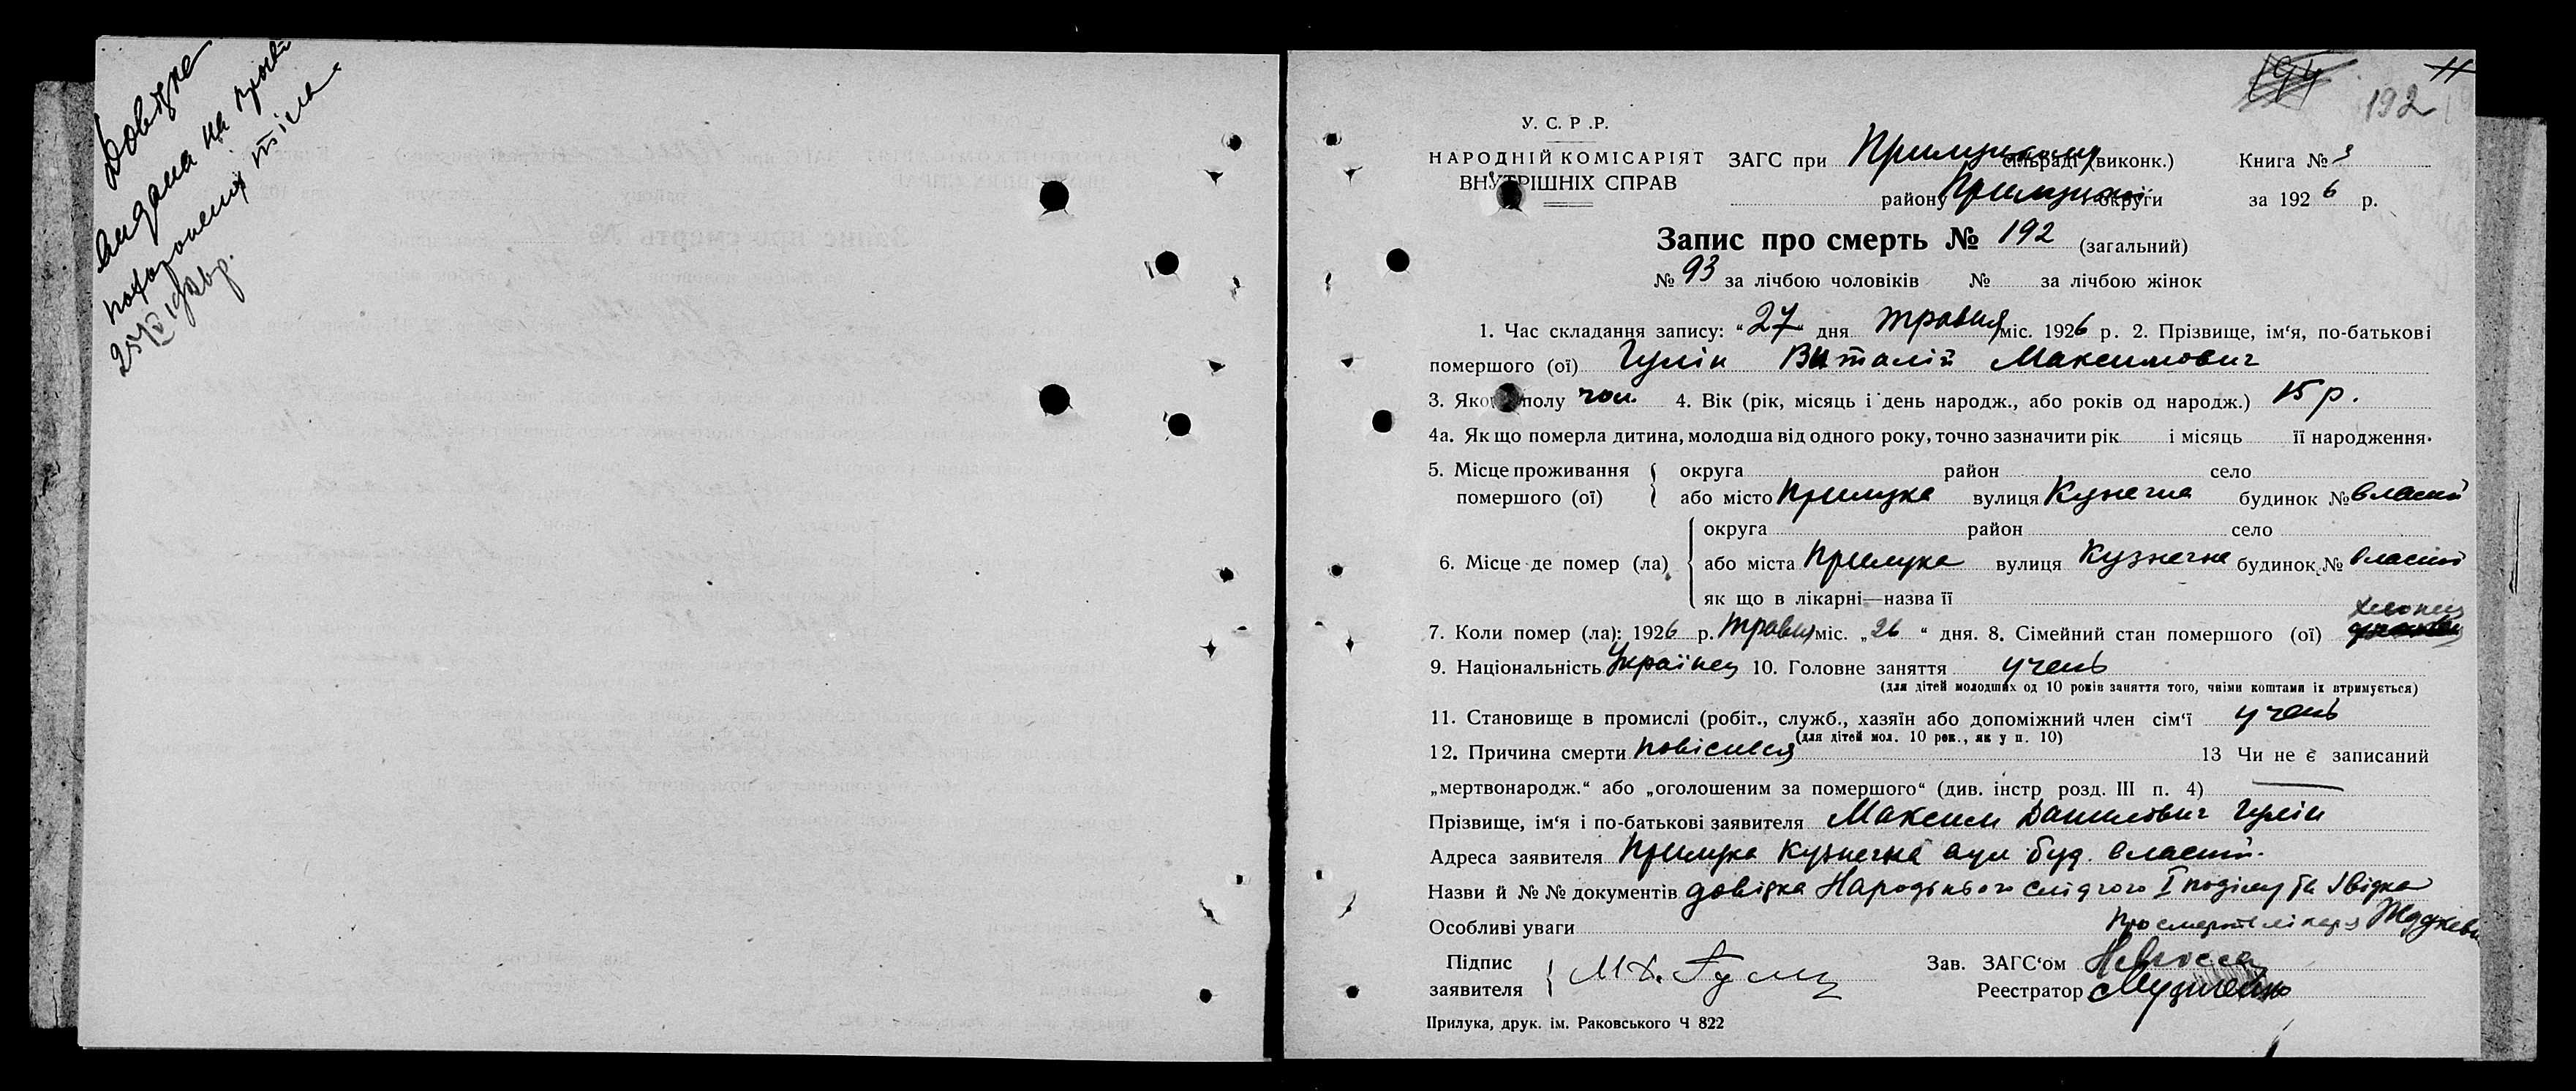 Довідка
видана на право
похоронення тіла
25/IV 1926 р.
194 11
192
У. С. Р. Р.
НАРОДНІЙ КОМІСАРІЯТ
ВНУТРІШНІХ СПРАВ
ЗАГС при Прилуцькому сільраді (виконк.) Книга № 3
району Прилуцької округи за 1926 р.
Запис про смерть № 192 (загальний)
№ 93 за лічбою чоловіків № за лічбою жінок
1. Час складання запису: "27" дня травня міс. 1926 р. 2. Прізвище, ім'я, по-батькові
помершого (ої) Гулін Виталій Максимович
3. Якого полу чол. 4. Вік (рік, місяць і день народж., або років од народж.) 15 р.
4а. Як що померла дитина, молодша від одного року, точно зазначити рік і місяць її народження.
5. Місце проживання помершого (ої) { округа район село
або місто Прилука вулиця Кузнечна будинок № власний
6. Місце де помер (ла) { округа район село
або міста Прилука вулиця Кузнечна будинок № власний
як що в лікарні—назва її
7. Коли помер (ла): 1926 р. травня міс. „26" дня. 8. Сімейний стан помершого (ої) хлопец
9. Національність Українец 10. Головне заняття учень
(для дітей молодших од 10 років заняття того, чиїми коштами їх втримується)
11. Становище в промислі (робіт., служб., хазяїн або допоміжний член сім'ї учень
(для дітей мол. 10 рок., як у п. 10)
12. Причина смерти повісився 13 Чи не є записаний
„мертвонародж." або „оголошеним за помершого" (див. інстр розд. III п. 4)
Прізвище, ім'я і по-батькові заявителя Максим Данилович Гулін
Адреса заявителя Прилука Кузнечна вул буд. власний.
Назви й № № документів довідка Народнього слідчого I поділу та довідка
про смерть лікаря
Особливі уваги
Підпис
заявителя { М Д. Гулин
Зав. ЗАГС'ом
Реестратор
Прилука, друк. ім. Раковського Ч 822